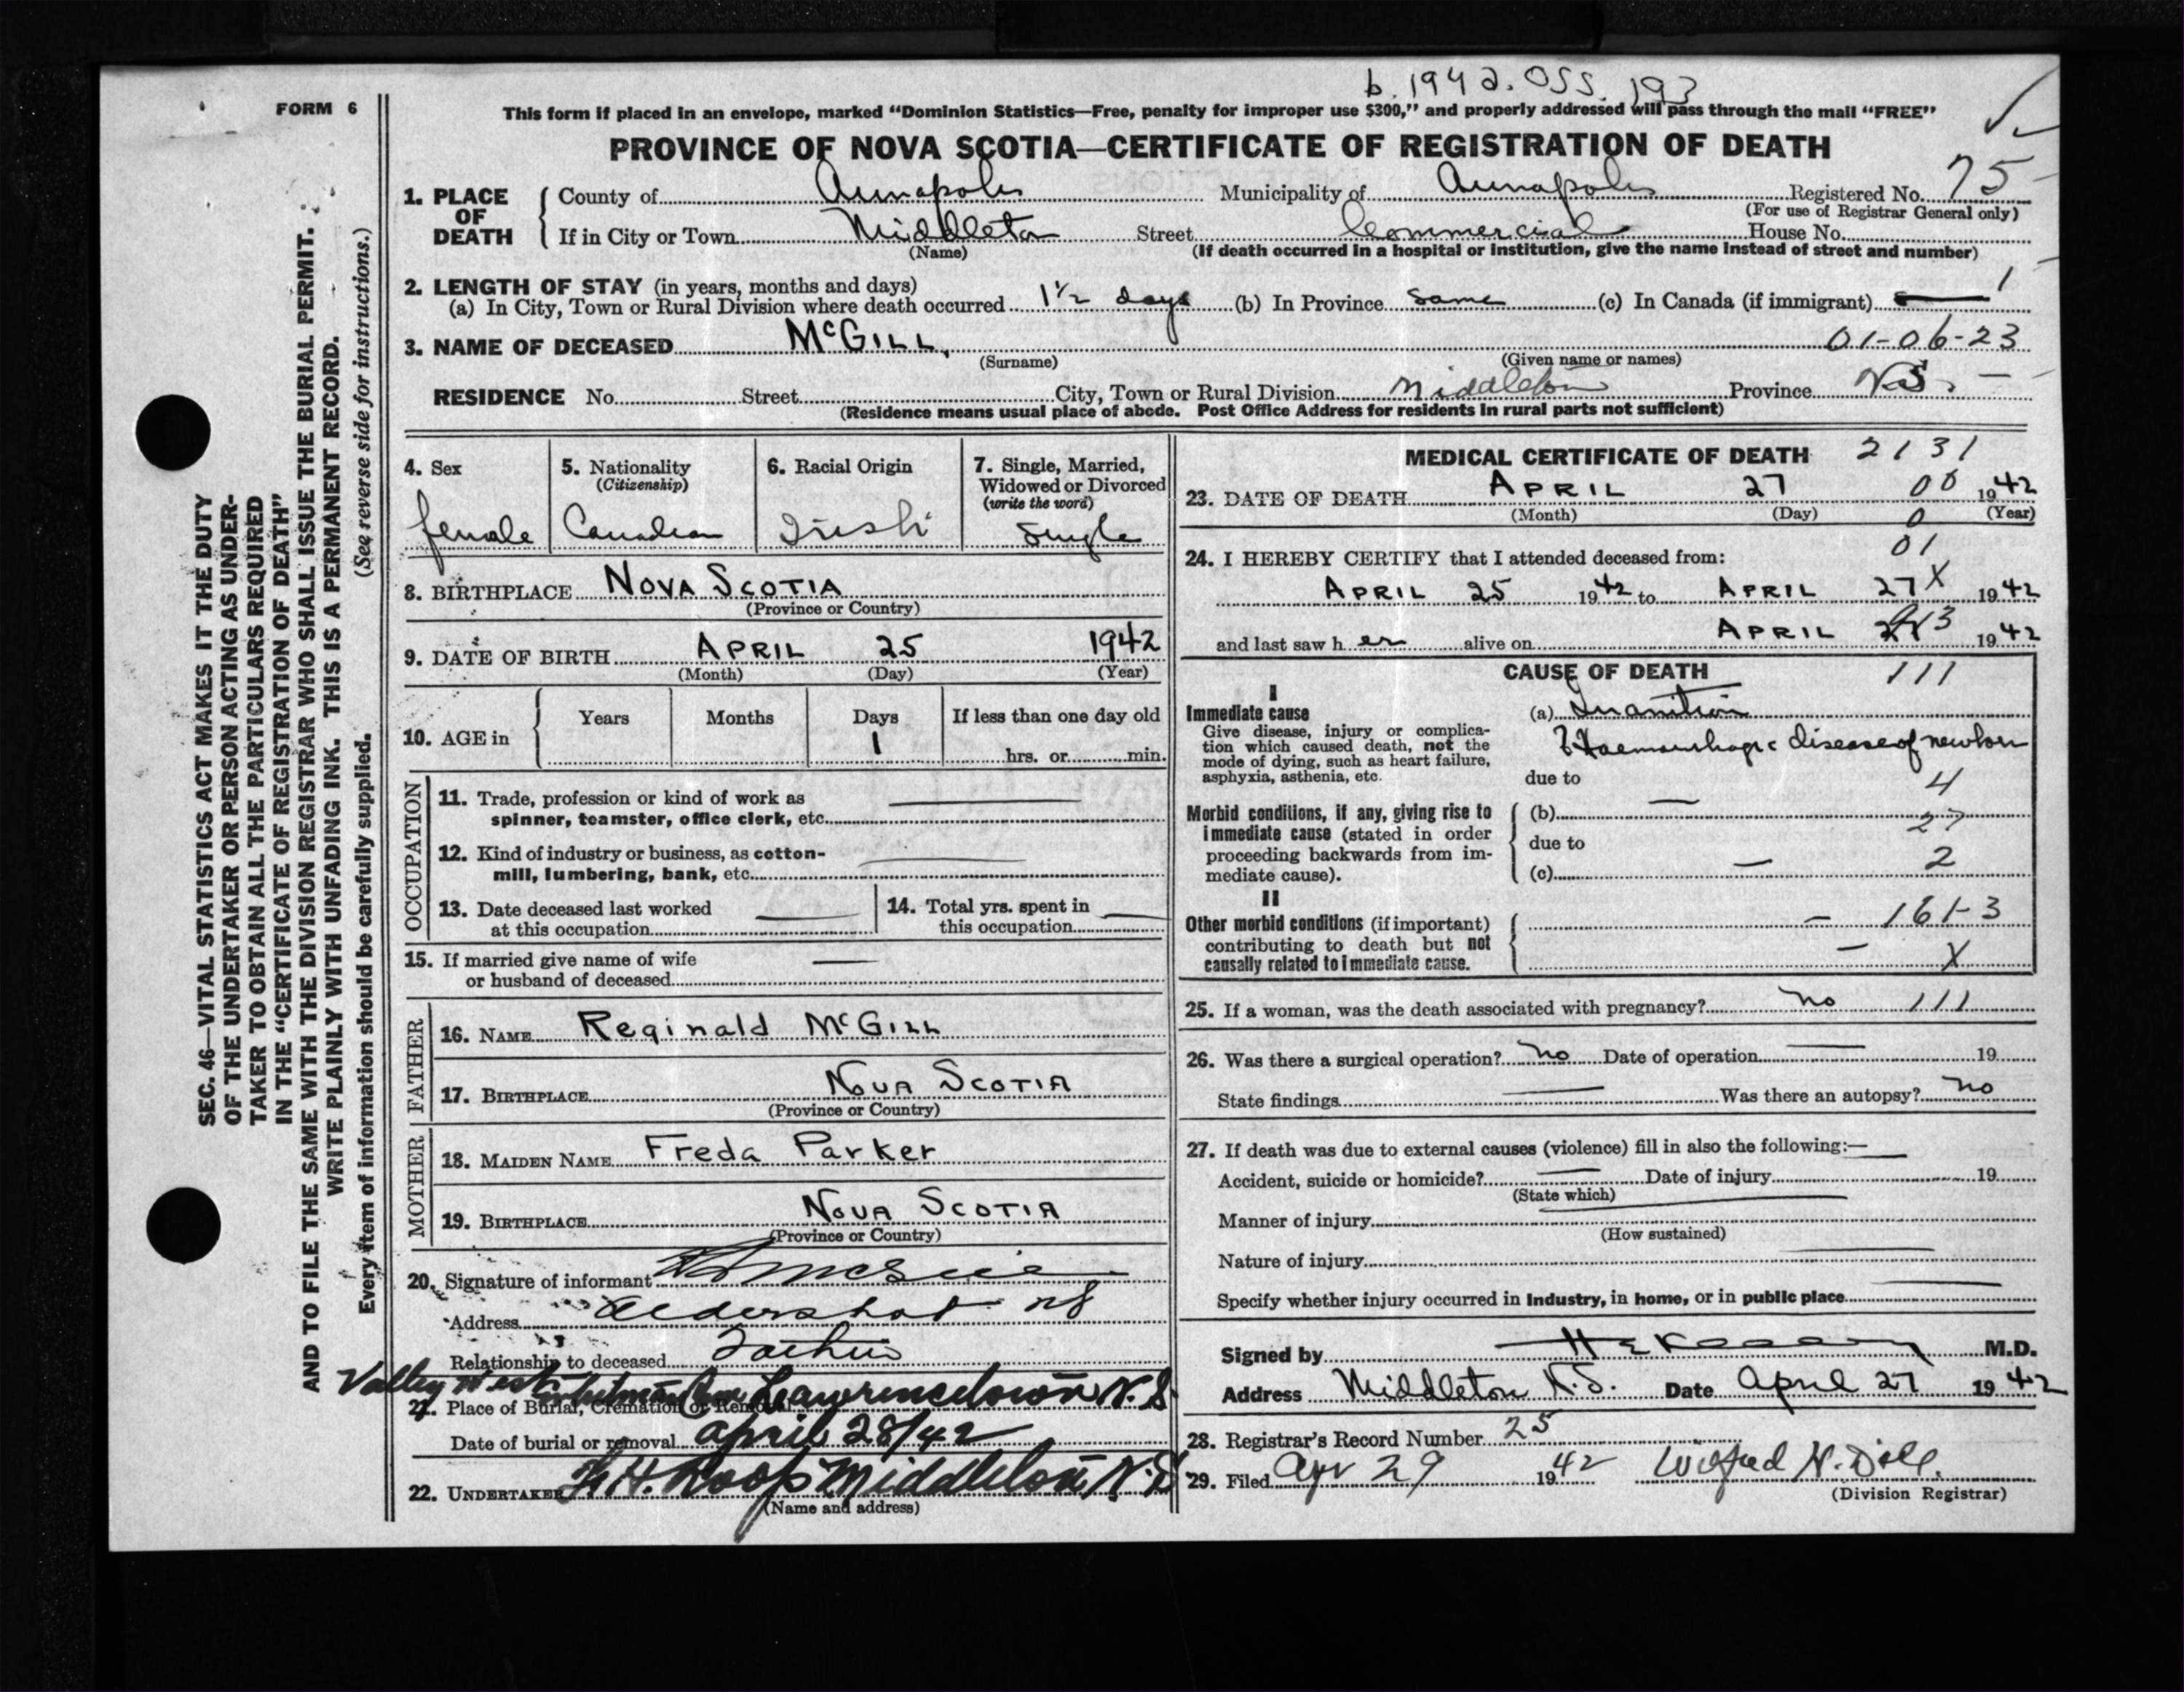 b. 1942. 055. 193
FORM 6
This form if placed in an envelope, marked "Dominion Statistics—Free, penalty for improper use $300," and properly addressed will pass through the mail "FREE"
PROVINCE OF NOVA SCOTIA—CERTIFICATE OF REGISTRATION OF DEATH
1. PLACE OF DEATH
County of Annapolis Municipality of Annapolis Registered No. 75
(For use of Registrar General only)
If in City or Town Middleton Street Commercial House No.
(Name) (If death occurred in a hospital or institution, give the name instead of street and number)
2. LENGTH OF STAY (in years, months and days)
(a) In City, Town or Rural Division where death occurred 1½ days (b) In Province same (c) In Canada (if immigrant) 1
3. NAME OF DECEASED McGILL, 01-06-23
(Surname) (Given name or names)
RESIDENCE No. Street City, Town or Rural Division Middleton Province N.S.
(Residence means usual place of abode. Post Office Address for residents in rural parts not sufficient)
4. Sex
female
5. Nationality
(Citizenship)
Canadian
6. Racial Origin
Irish
7. Single, Married,
Widowed or Divorced
(write the word)
Single
8. BIRTHPLACE NOVA SCOTIA
(Province or Country)
9. DATE OF BIRTH APRIL 25 1942
(Month) (Day) (Year)
10. AGE in
Years Months Days If less than one day old
1 hrs. or min.
OCCUPATION
11. Trade, profession or kind of work as
spinner, teamster, office clerk, etc.
12. Kind of industry or business, as cotton-
mill, lumbering, bank, etc.
13. Date deceased last worked
at this occupation
14. Total yrs. spent in
this occupation
15. If married give name of wife
or husband of deceased
FATHER
16. NAME Reginald McGILL
17. BIRTHPLACE NOVA SCOTIA
(Province or Country)
MOTHER
18. MAIDEN NAME Freda Parker
19. BIRTHPLACE NOVA SCOTIA
(Province or Country)
20. Signature of informant
Address Aldershot NS
Relationship to deceased Father
Valley West
21. Place of Burial, Cremation or Removal Lawrencetown N.S
Date of burial or removal April 28/42
22. UNDERTAKER H. Roop Middleton N.S
(Name and address)
MEDICAL CERTIFICATE OF DEATH 2131
23. DATE OF DEATH APRIL 27 00 1942
(Month) (Day) 0 (Year)
24. I HEREBY CERTIFY that I attended deceased from: 01
APRIL 25 1942 to APRIL 27 X 1942
and last saw her alive on APRIL 1942
CAUSE OF DEATH 111
I
Immediate cause
Give disease, injury or complica-
tion which caused death, not the
mode of dying, such as heart failure,
asphyxia, asthenia, etc.
(a) Inanition
? Haemorrhagic disease of newborn
due to 4
Morbid conditions, if any, giving rise to
immediate cause (stated in order
proceeding backwards from im-
mediate cause).
(b) 27
due to
(c) 2
II
Other morbid conditions (if important)
contributing to death but not
causally related to immediate cause.
161-3
X
25. If a woman, was the death associated with pregnancy? no 111
26. Was there a surgical operation? no Date of operation 19
State findings Was there an autopsy? no
27. If death was due to external causes (violence) fill in also the following:—
Accident, suicide or homicide? Date of injury 19
(State which)
Manner of injury
(How sustained)
Nature of injury
Specify whether injury occurred in Industry, in home, or in public place
Signed by M.D.
Address Middleton N.S. Date April 27 1942
28. Registrar's Record Number 25
29. Filed Apr 29 1942 Wilfred
(Division Registrar)
SEC. 46—VITAL STATISTICS ACT MAKES IT THE DUTY
OF THE UNDERTAKER OR PERSON ACTING AS UNDER-
TAKER TO OBTAIN ALL THE PARTICULARS REQUIRED
IN THE "CERTIFICATE OF REGISTRATION OF DEATH"
AND TO FILE THE SAME WITH THE DIVISION REGISTRAR WHO SHALL ISSUE THE BURIAL PERMIT.
WRITE PLAINLY WITH UNFADING INK. THIS IS A PERMANENT RECORD.
Every item of information should be carefully supplied. (See reverse side for instructions.)